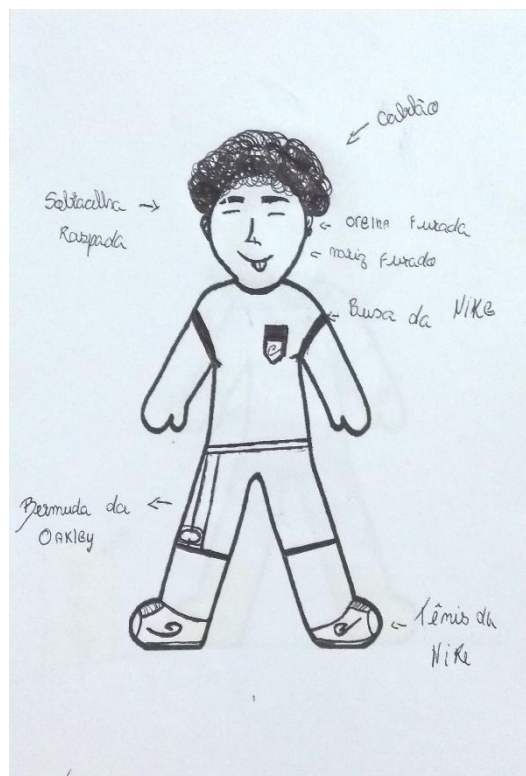 cabelão
Sobracelha
Raspada
orelha Furada
nariz Furado
Blusa da NIKE
Bermuda da
OAKLEY
Tênis da
NiKe